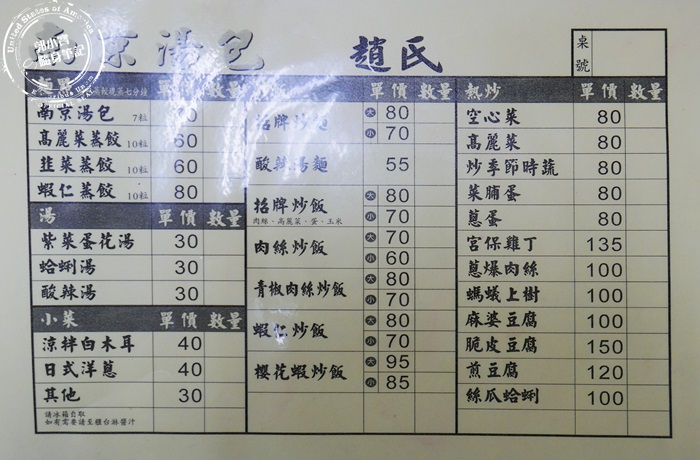 京湯包 趙氏
桌號
麵點 單價 數量
南京湯包 7粒
高麗菜蒸餃 10粒 60
韭菜蒸餃 10粒 60
蝦仁蒸餃 10粒 80
湯 單價 數量
紫菜蛋花湯 30
蛤蜊湯 30
酸辣湯 30
小菜 單價 數量
涼拌白木耳 40
日式洋蔥 40
其他 30
請冰箱自取
如有需要請至櫃台淋醬汁
飯 單價 數量
招牌炒麵 大 80
小 70
酸辣湯麵 55
招牌炒飯 大 80
肉絲、高麗菜、蛋、玉米 小 70
肉絲炒飯 大 70
小 60
青椒肉絲炒飯 大 80
小 70
蝦仁炒飯 大 80
小 70
櫻花蝦炒飯 大 95
小 85
熱炒 單價 數量
空心菜 80
高麗菜 80
炒季節時蔬 80
菜脯蛋 80
蔥蛋 80
宮保雞丁 135
蔥爆肉絲 100
螞蟻上樹 100
麻婆豆腐 100
脆皮豆腐 150
煎豆腐 120
絲瓜蛤蜊 100